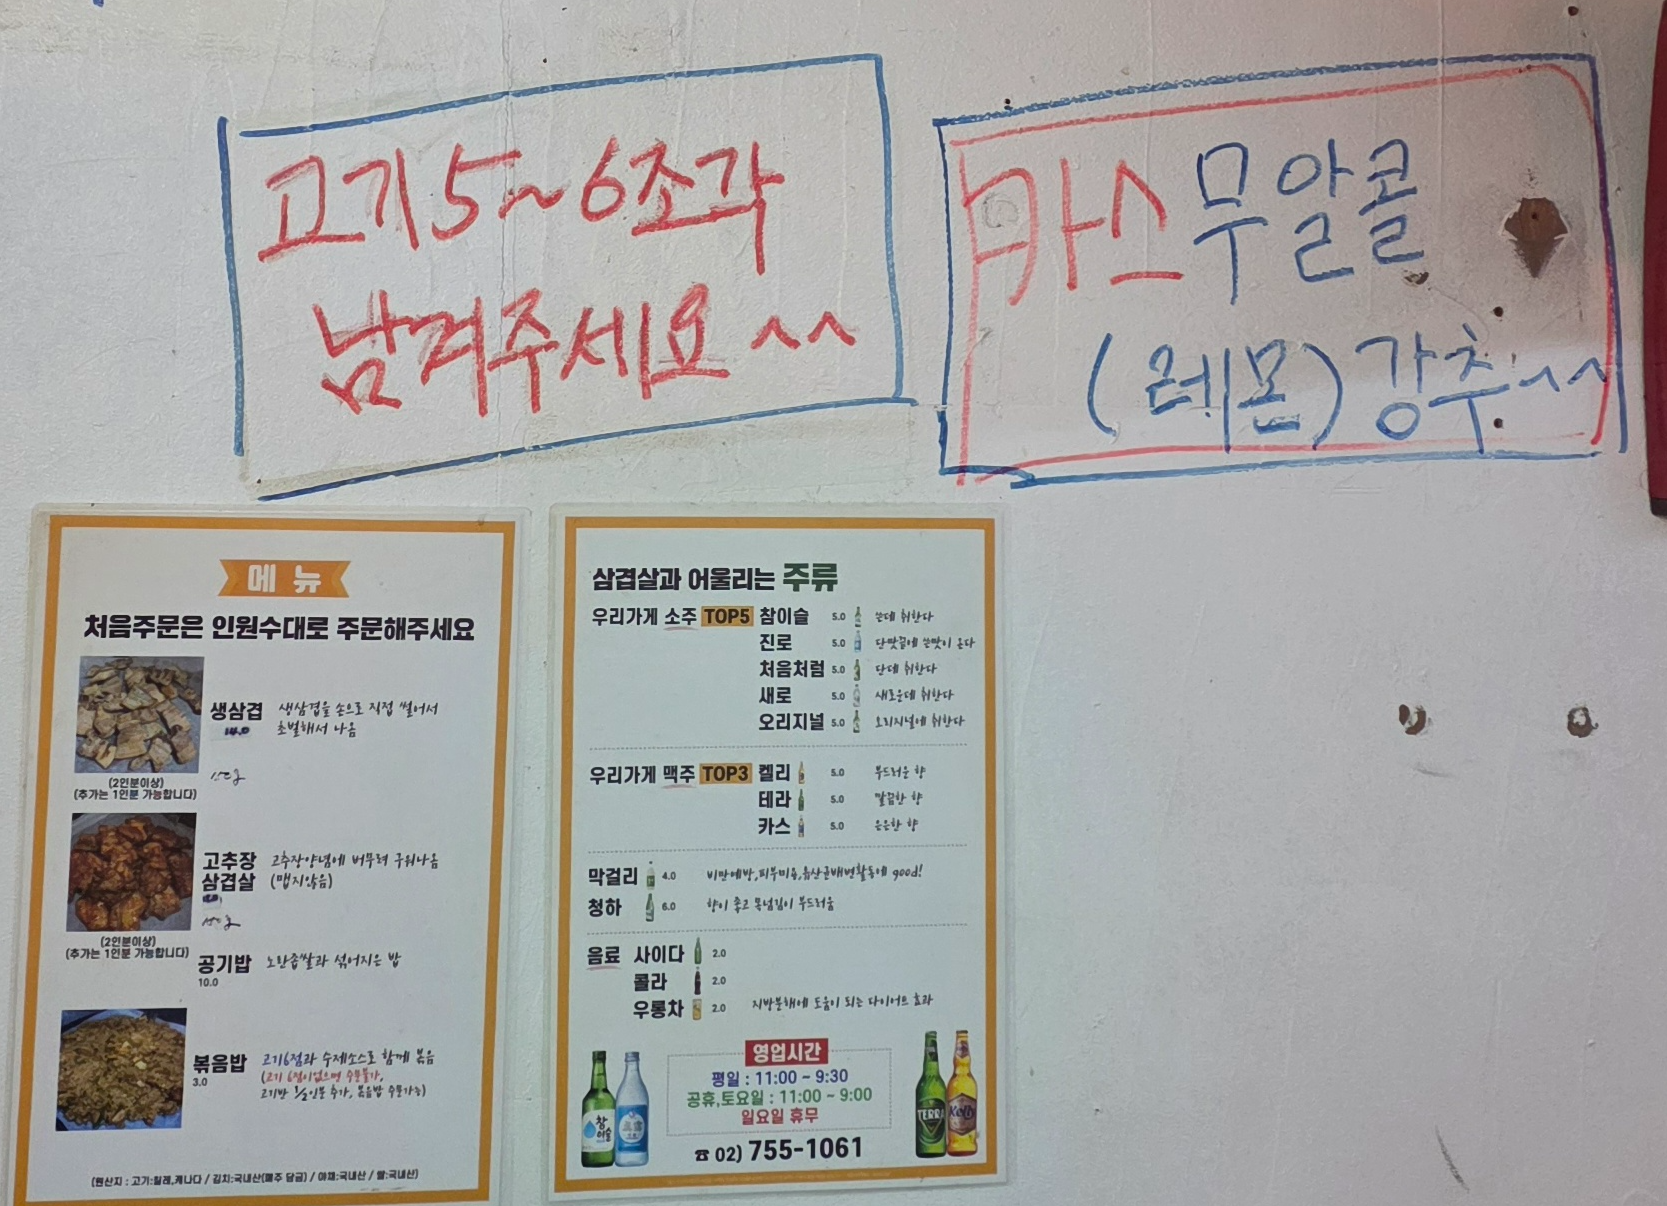 고기5~6조각
남겨주세요^^
카스무알콜
(레몬)강추~^^
메뉴
처음주문은 인원수대로 주문해주세요
생삼겹 생삼겹을 손으로 직접 썰어서
14.0 초벌해서 나옴
(2인분이상)
(추가는 1인분 가능합니다)
고추장 고추장양념에 버무려 구워나옴
삼겹살 (맵지않음)
(2인분이상)
(추가는 1인분 가능합니다)
공기밥 노란좁쌀과 섞어지은 밥
10.0
볶음밥 고기6점과 수제소스로 함께 볶음
3.0 (고기 6점이없으면 주문불가,
고기반 1/2인분 추가, 볶음밥 주문가능)
(원산지 : 고기:칠레,케나다 / 김치:국내산(매주 담금) / 야채:국내산 / 쌀:국내산)
삼겹살과 어울리는 주류
우리가게 소주 TOP5 참이슬 5.0 쓴데 취한다
진로 5.0 단맛끝에 쓴맛이 온다
처음처럼 5.0 단데 취한다
새로 5.0 새로운데 취한다
오리지널 5.0 오리지널에 취한다
우리가게 맥주 TOP3 켈리 5.0 부드러운 향
테라 5.0 깔끔한 향
카스 5.0 은은한 향
막걸리 4.0 비만예방,피부미용,유산균배변활동에 good!
청하 6.0 향이 좋고 목넘김이 부드러움
음료 사이다 2.0
콜라 2.0
우롱차 2.0 지방분해에 도움이 되는 다이어트 효과
영업시간
평일 : 11:00 ~ 9:30
공휴,토요일 : 11:00 ~ 9:00
일요일 휴무
☎ 02) 755-1061
참이슬
TERRA
Kelly